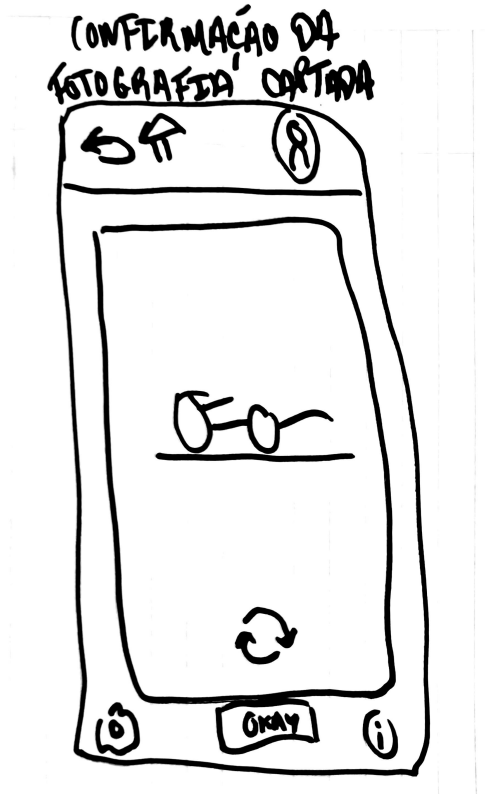 CONFIRMAÇÃO DA
FOTOGRAFIA CAPTADA
OKAY
i